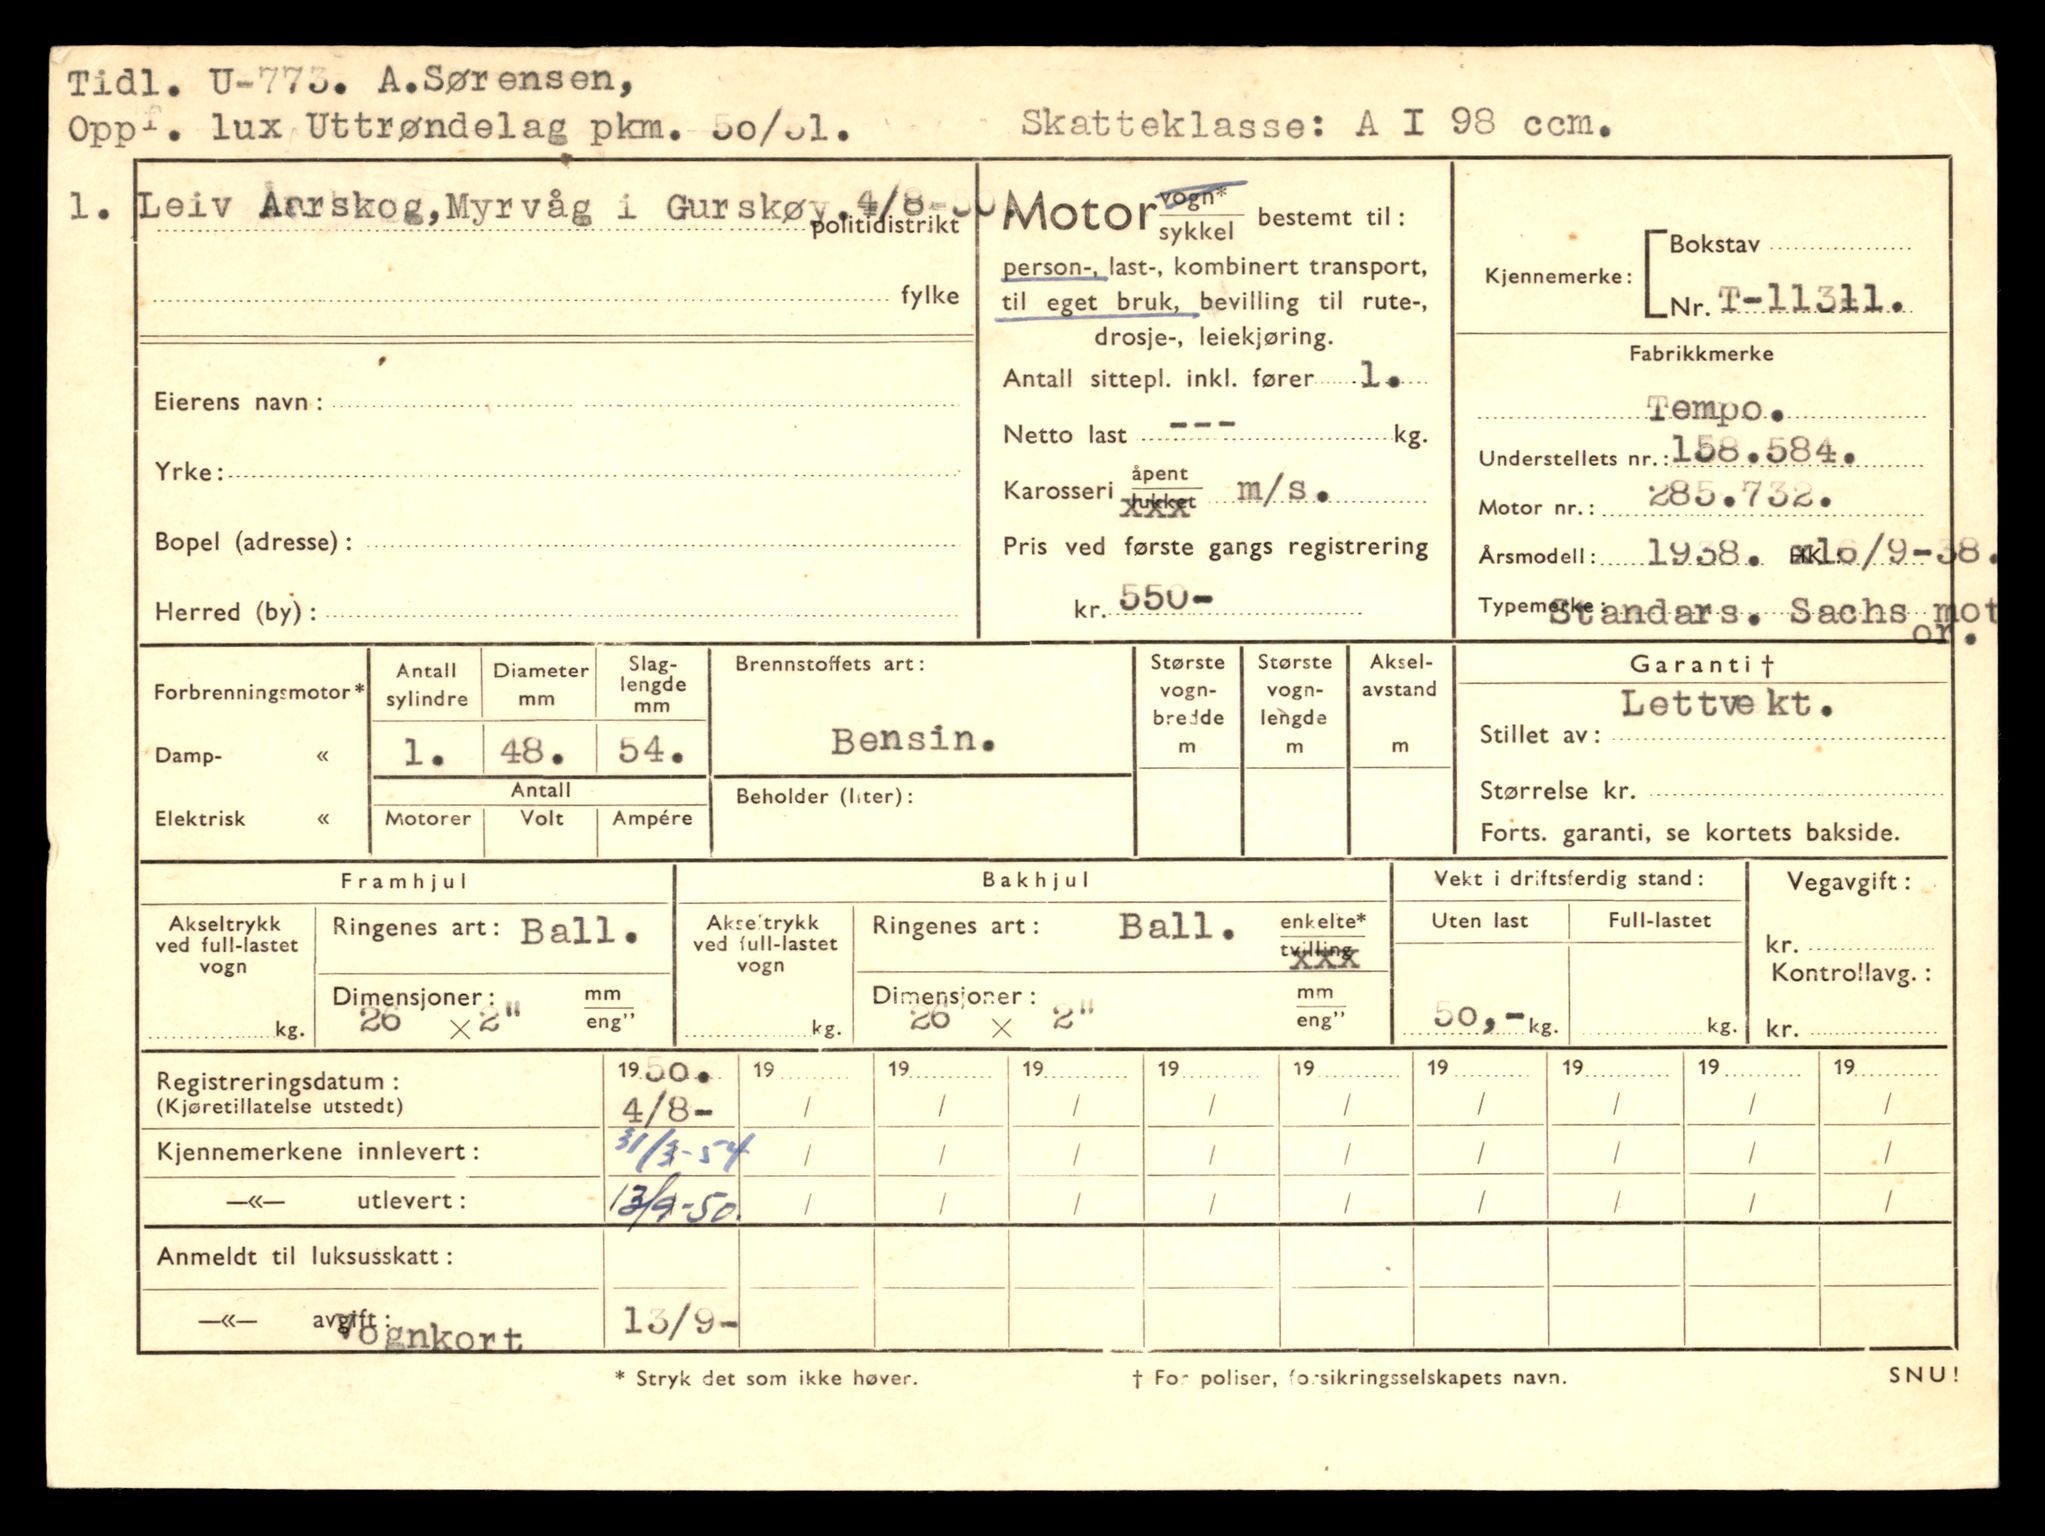 Tidl. U-773. A.Sørensen,
Oppf. lux Uttrøndelag pkm. 50/51.
Skatteklasse: A I 98 ccm.
1. Leiv Aarskog, Myrvåg i Gurskøy. 4/8-50.
politidistrikt
fylke
Eierens navn:
Yrke:
Bopel (adresse):
Herred (by):
Motor vogn* / sykkel bestemt til:
person-, last-, kombinert transport,
til eget bruk, bevilling til rute-,
drosje-, leiekjøring.
Antall sittepl. inkl. fører 1.
Netto last --- kg.
Karosseri åpent / lukket xxx m/s.
Pris ved første gangs registrering
kr. 550-
Kjennemerke: Bokstav
Nr. T-11311.
Fabrikkmerke
Tempo.
Understellets nr.: 158.584.
Motor nr.: 285.732.
Årsmodell: 1938. HK.: 16/9-38.
Typemerke: Standars. Sachs mot
or.
Forbrenningsmotor*
Damp- «
Elektrisk «
Antall sylindre
Diameter mm
Slag-lengde mm
1. 48. 54.
Antall
Motorer Volt Ampére
Brennstoffets art:
Bensin.
Beholder (liter):
Største vogn-bredde m
Største vogn-lengde m
Aksel-avstand m
Garanti †
Lettvekt.
Stillet av:
Størrelse kr.
Forts. garanti, se kortets bakside.
Framhjul
Akseltrykk ved full-lastet vogn
kg.
Ringenes art: Ball.
Dimensjoner: mm / eng"
26 × 2"
Bakhjul
Akseltrykk ved full-lastet vogn
kg.
Ringenes art: Ball. enkelte* / tvilling xxx
Dimensjoner: mm / eng"
26 × 2"
Vekt i driftsferdig stand:
Uten last Full-lastet
50,- kg. kg.
Vegavgift:
kr.
Kontrollavg.:
kr.
Registreringsdatum: 1950. 19 19 19 19 19 19 19 19 19
(Kjøretillatelse utstedt) 4/8- / / / / / / / / /
Kjennemerkene innlevert: 31/3-54 / / / / / / / / /
—«— utlevert: 13/9-50. / / / / / / / / /
Anmeldt til luksusskatt:
—«— avgift: 13/9-
Vognkort
* Stryk det som ikke høver.
† For poliser, forsikringsselskapets navn.
SNU!